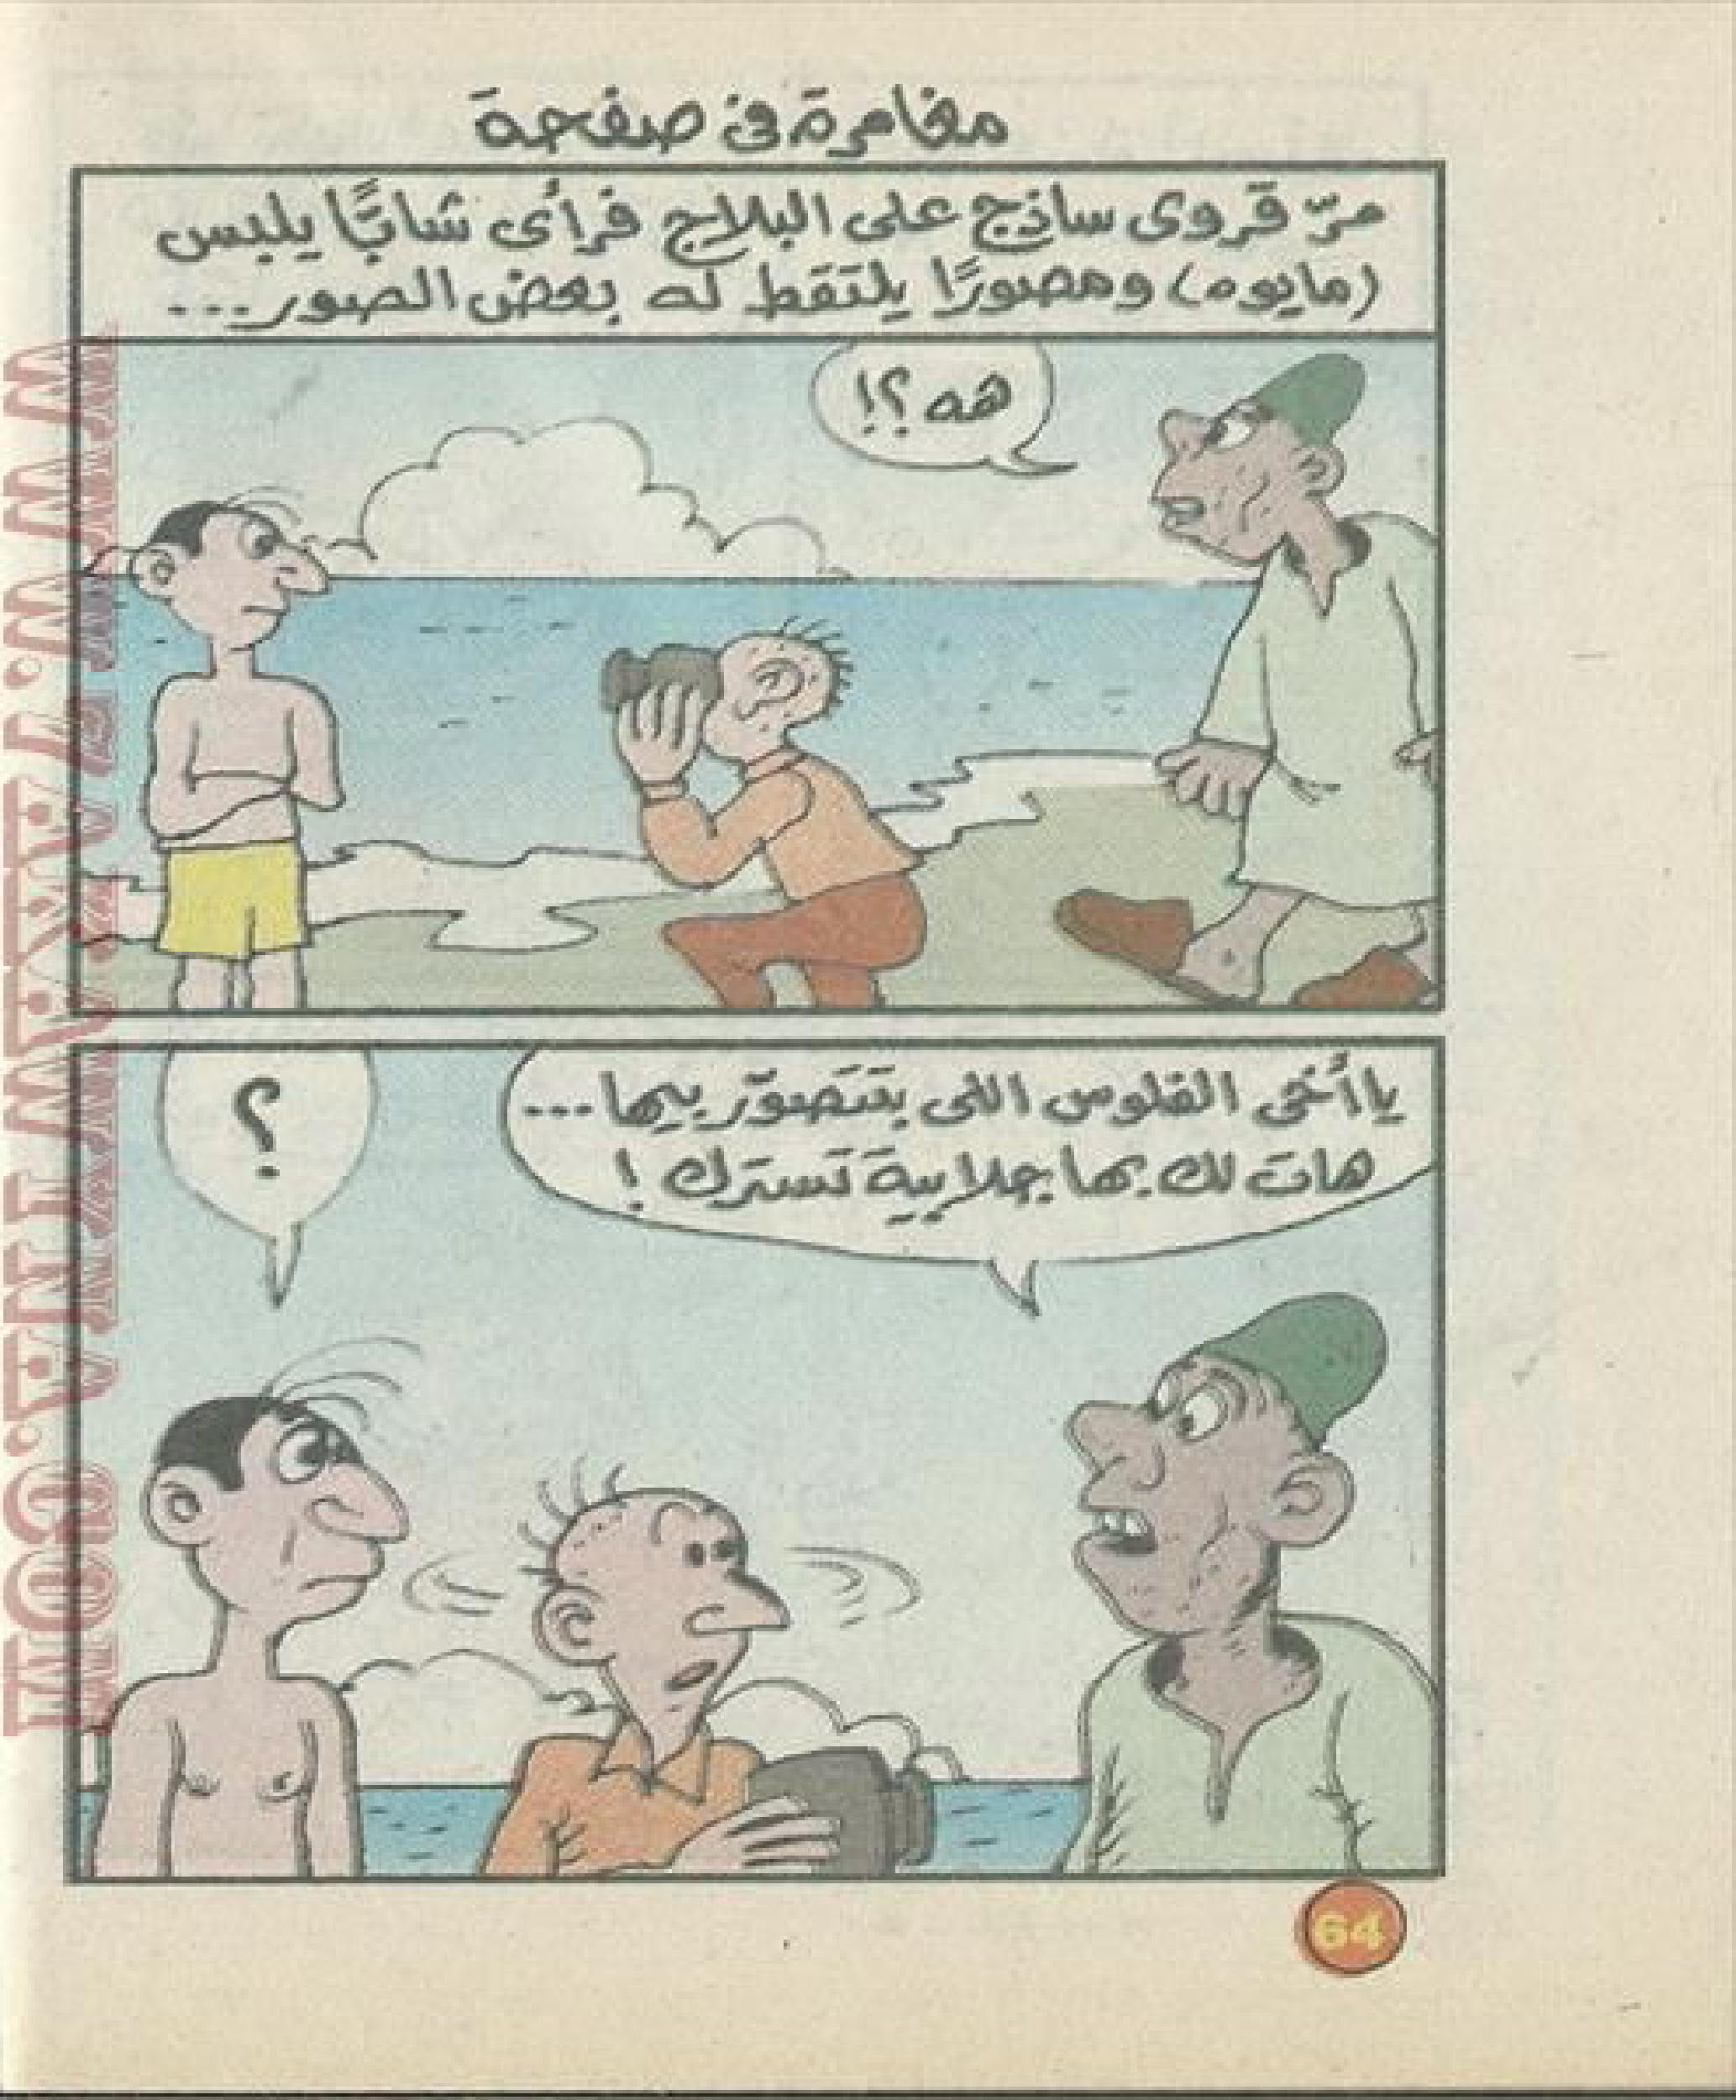 مغامرة فى صفحة
مرّ قروى ساذج على البلاج فرأى شابًّا يلبس
(مايوه) ومصورًا يلتقط له بعض الصور...
هه؟!
يا أخى الفلوس اللى بتتَصوّر بيها...
هات لك بها جلابية تسترك !
؟
64
WWW.ZAKAWYNA.COM